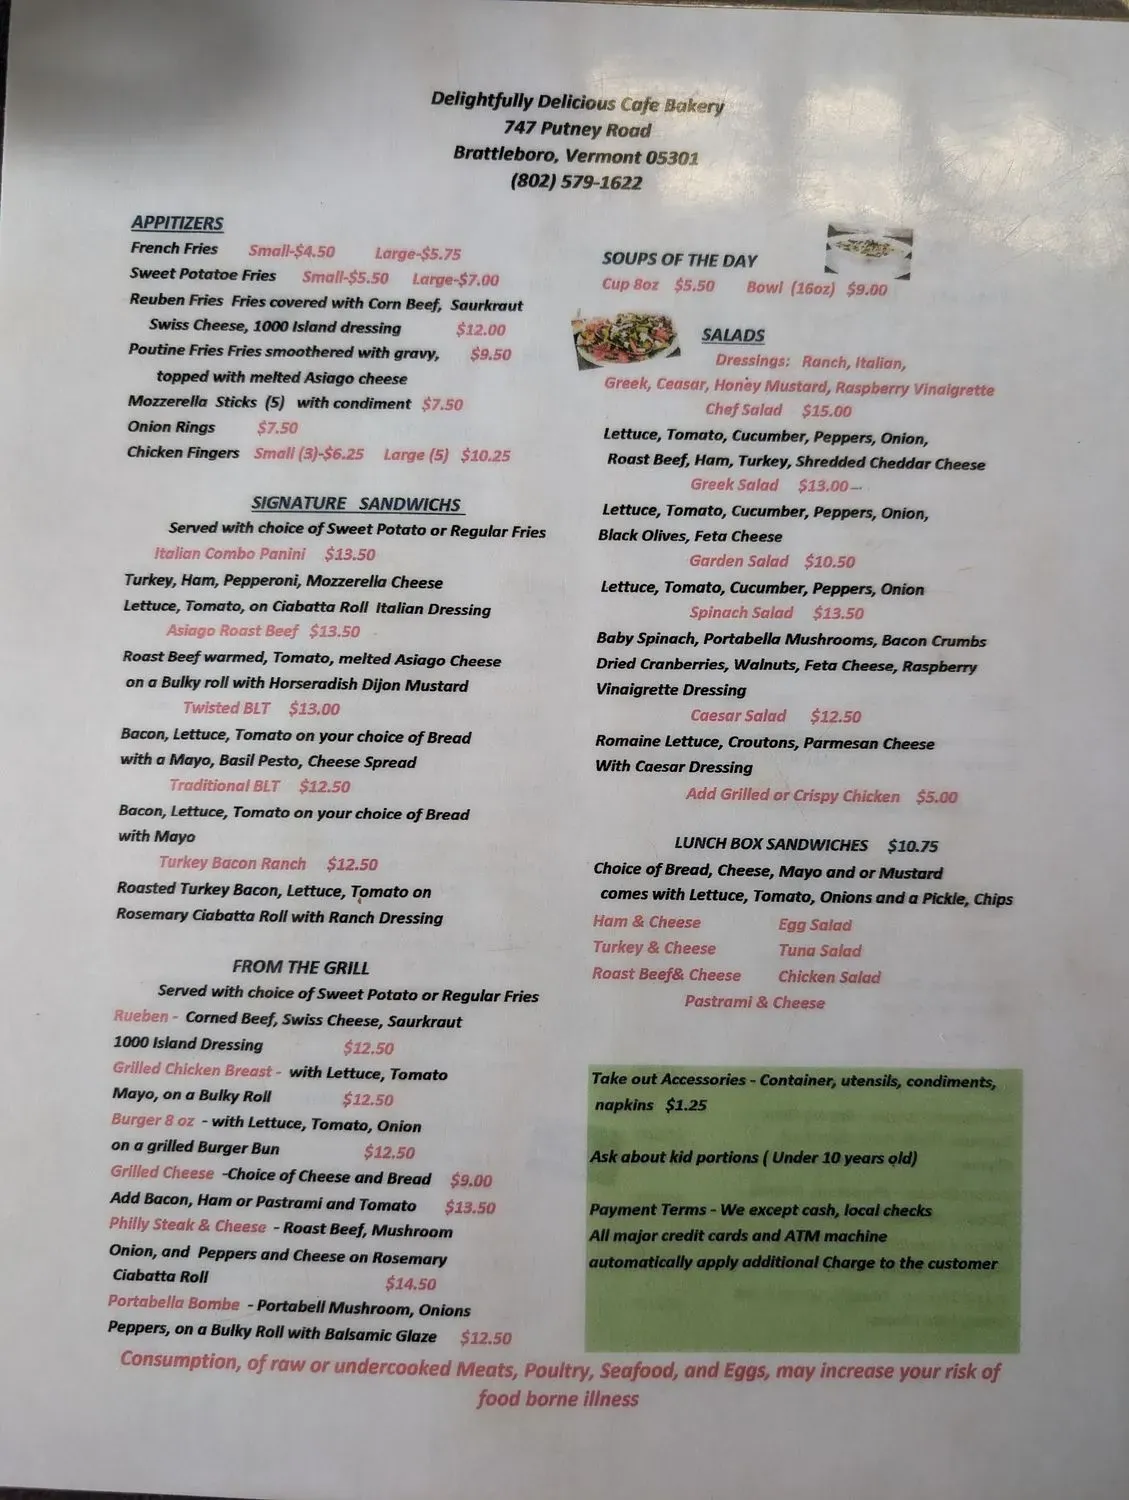 Delightfully Delicious Cafe Bakery
747 Putney Road
Brattleboro, Vermont 05301
(802) 579-1622
APPITIZERS
French Fries Small-$4.50 Large-$5.75
Sweet Potatoe Fries Small-$5.50 Large-$7.00
Reuben Fries Fries covered with Corn Beef, Saurkraut
Swiss Cheese, 1000 Island dressing $12.00
Poutine Fries Fries smoothered with gravy, $9.50
topped with melted Asiago cheese
Mozzerella Sticks (5) with condiment $7.50
Onion Rings $7.50
Chicken Fingers Small (3)-$6.25 Large (5) $10.25
SIGNATURE SANDWICHS
Served with choice of Sweet Potato or Regular Fries
Italian Combo Panini $13.50
Turkey, Ham, Pepperoni, Mozzerella Cheese
Lettuce, Tomato, on Ciabatta Roll Italian Dressing
Asiago Roast Beef $13.50
Roast Beef warmed, Tomato, melted Asiago Cheese
on a Bulky roll with Horseradish Dijon Mustard
Twisted BLT $13.00
Bacon, Lettuce, Tomato on your choice of Bread
with a Mayo, Basil Pesto, Cheese Spread
Traditional BLT $12.50
Bacon, Lettuce, Tomato on your choice of Bread
with Mayo
Turkey Bacon Ranch $12.50
Roasted Turkey Bacon, Lettuce, Tomato on
Rosemary Ciabatta Roll with Ranch Dressing
FROM THE GRILL
Served with choice of Sweet Potato or Regular Fries
Rueben - Corned Beef, Swiss Cheese, Saurkraut
1000 Island Dressing $12.50
Grilled Chicken Breast - with Lettuce, Tomato
Mayo, on a Bulky Roll $12.50
Burger 8 oz - with Lettuce, Tomato, Onion
on a grilled Burger Bun $12.50
Grilled Cheese -Choice of Cheese and Bread $9.00
Add Bacon, Ham or Pastrami and Tomato $13.50
Philly Steak & Cheese - Roast Beef, Mushroom
Onion, and Peppers and Cheese on Rosemary
Ciabatta Roll $14.50
Portabella Bombe - Portabell Mushroom, Onions
Peppers, on a Bulky Roll with Balsamic Glaze $12.50
SOUPS OF THE DAY
Cup 8oz $5.50 Bowl (16oz) $9.00
SALADS
Dressings: Ranch, Italian,
Greek, Ceasar, Honey Mustard, Raspberry Vinaigrette
Chef Salad $15.00
Lettuce, Tomato, Cucumber, Peppers, Onion,
Roast Beef, Ham, Turkey, Shredded Cheddar Cheese
Greek Salad $13.00
Lettuce, Tomato, Cucumber, Peppers, Onion,
Black Olives, Feta Cheese
Garden Salad $10.50
Lettuce, Tomato, Cucumber, Peppers, Onion
Spinach Salad $13.50
Baby Spinach, Portabella Mushrooms, Bacon Crumbs
Dried Cranberries, Walnuts, Feta Cheese, Raspberry
Vinaigrette Dressing
Caesar Salad $12.50
Romaine Lettuce, Croutons, Parmesan Cheese
With Caesar Dressing
Add Grilled or Crispy Chicken $5.00
LUNCH BOX SANDWICHES $10.75
Choice of Bread, Cheese, Mayo and or Mustard
comes with Lettuce, Tomato, Onions and a Pickle, Chips
Ham & Cheese Egg Salad
Turkey & Cheese Tuna Salad
Roast Beef& Cheese Chicken Salad
Pastrami & Cheese
Take out Accessories - Container, utensils, condiments,
napkins $1.25
Ask about kid portions ( Under 10 years old)
Payment Terms - We except cash, local checks
All major credit cards and ATM machine
automatically apply additional Charge to the customer
Consumption, of raw or undercooked Meats, Poultry, Seafood, and Eggs, may increase your risk of
food borne illness